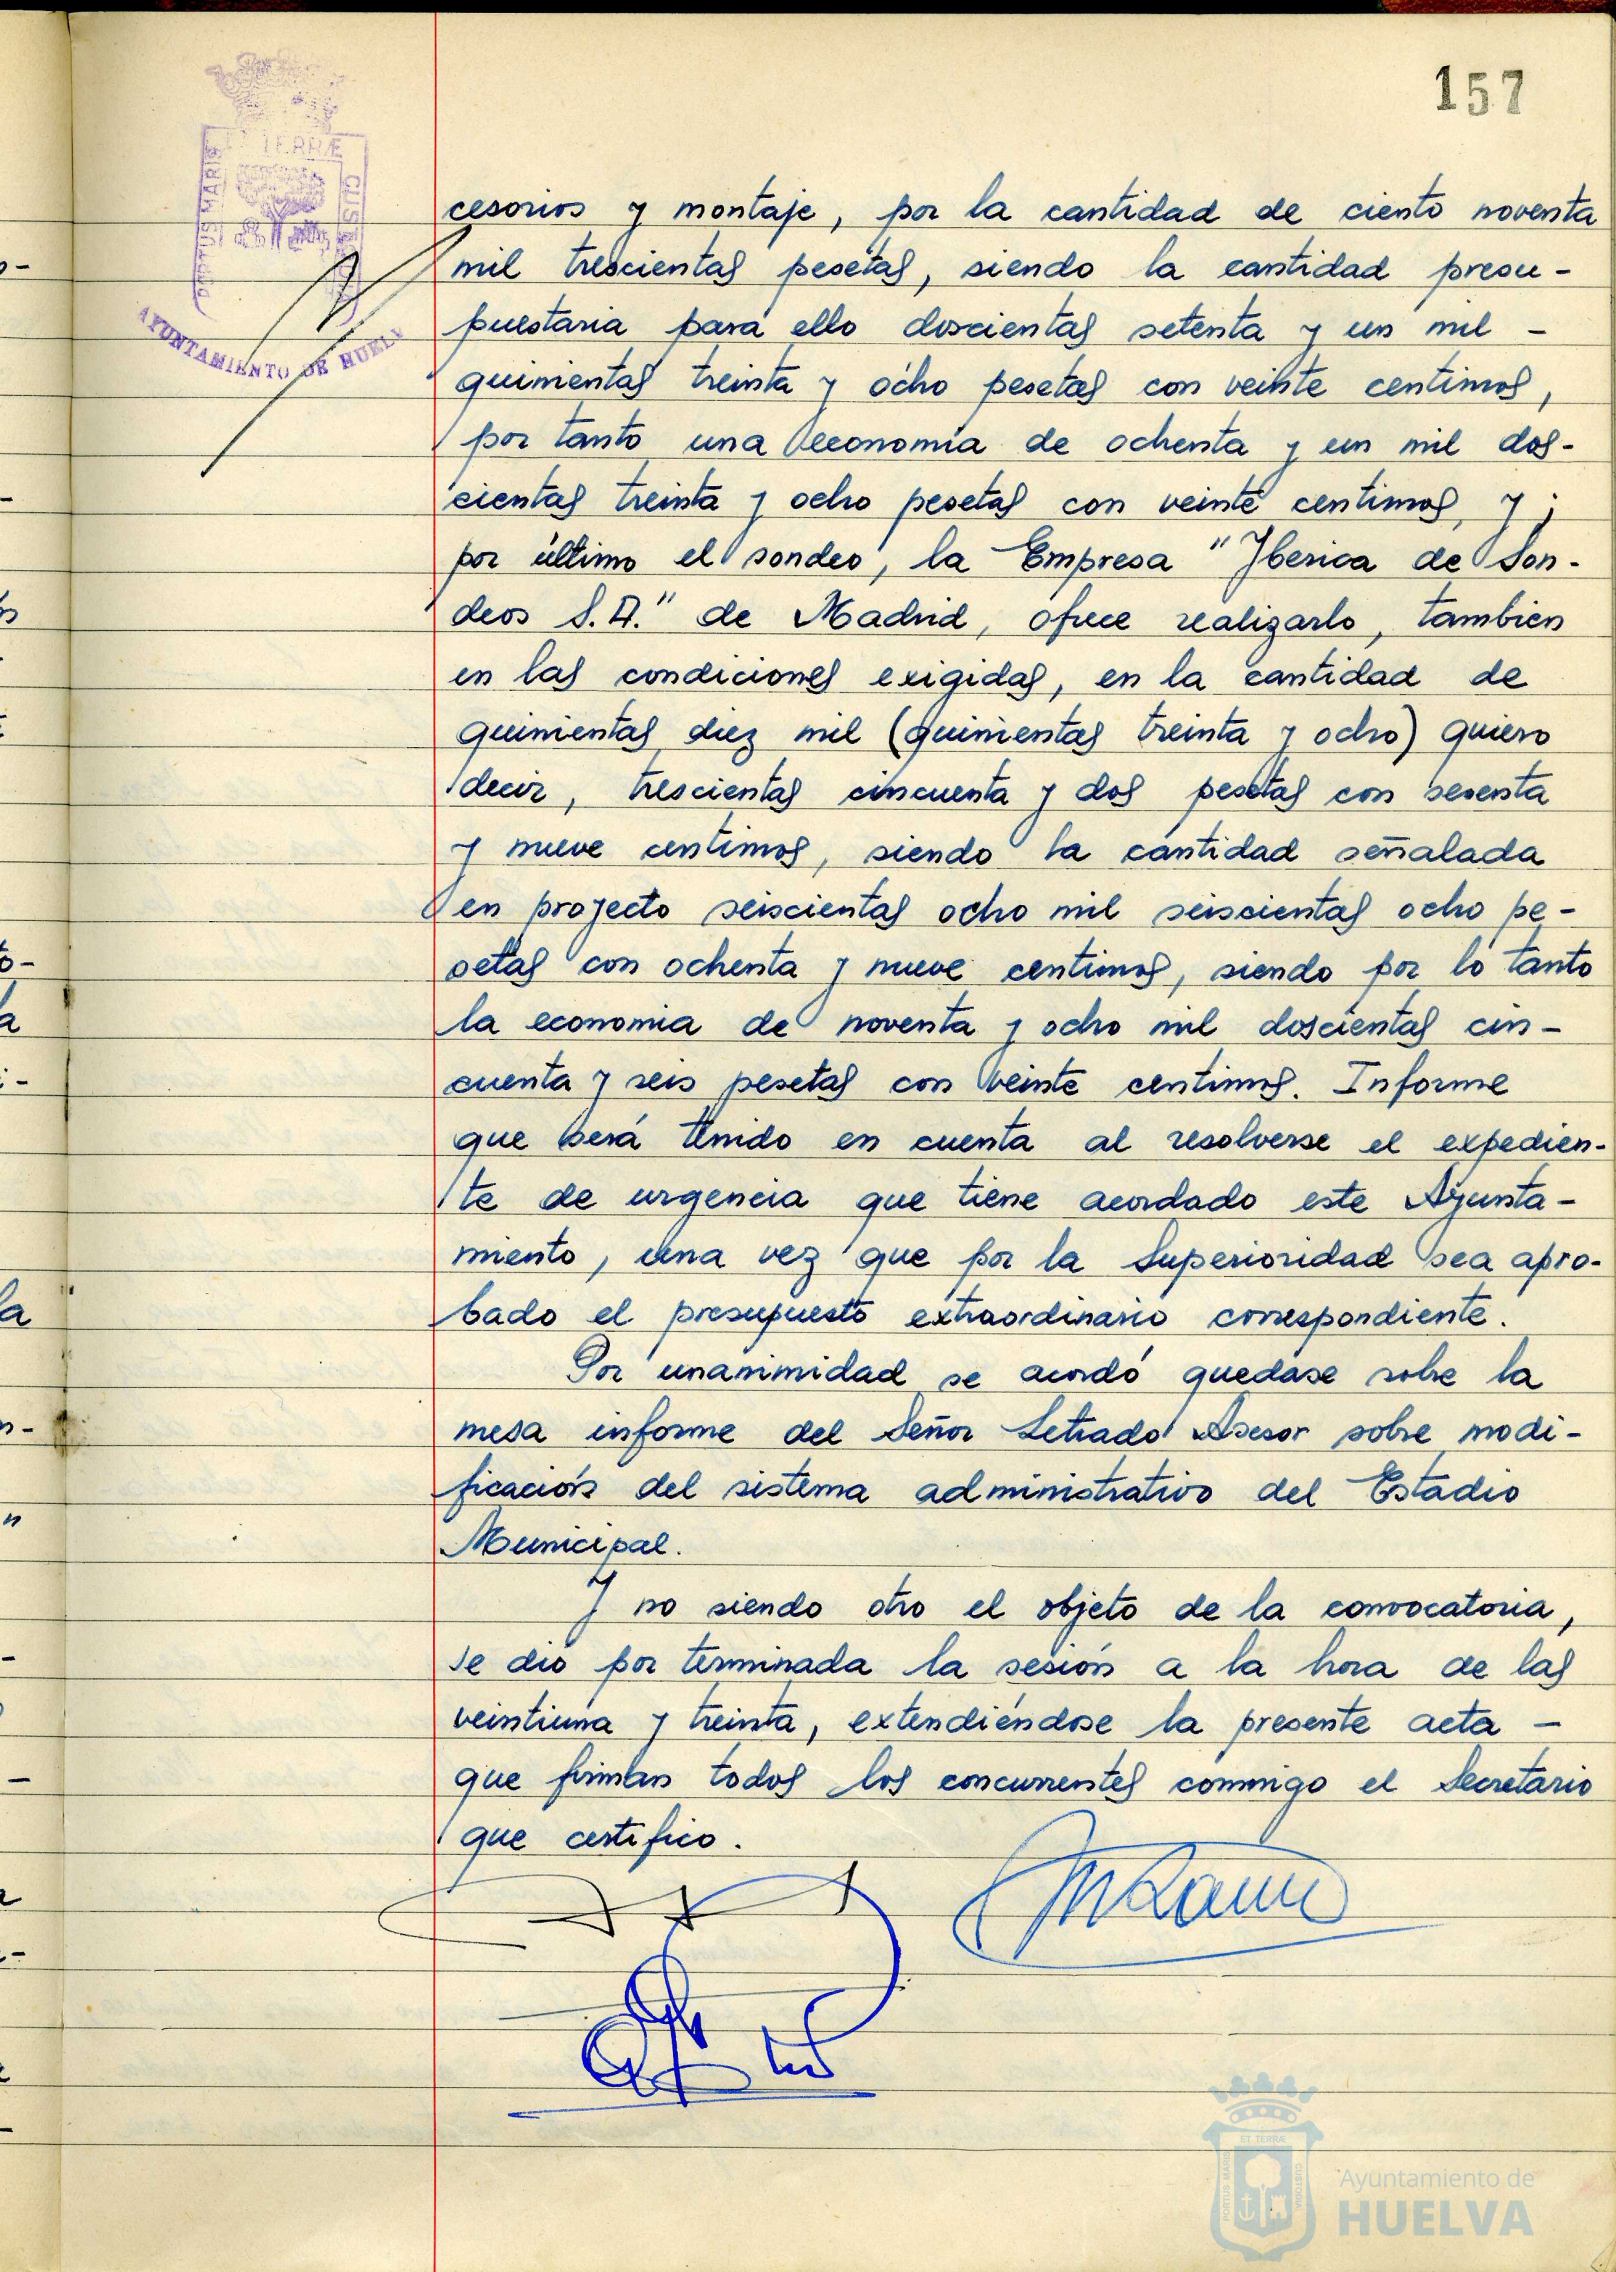 157
ET TERRÆ
PORTUS MARIS
CUSTODIA
AYUNTAMIENTO DE HUELVA
cesorios y montaje, por la cantidad de ciento noventa
mil trescientas pesetas, siendo la cantidad presu-
puestaria para ello doscientas setenta y un mil -
quinientas treinta y ocho pesetas con veinte centimos,
por tanto una economia de ochenta y un mil dos-
cientas treinta y ocho pesetas con veinte centimos, y ;
por último el sondeo, la Empresa "Yberica de Son-
deos S.A." de Madrid, ofrece realizarlo, tambien
en las condiciones exigidas, en la cantidad de
quinientas diez mil (quinientas treinta y ocho) quiero
decir, trescientas cincuenta y dos pesetas con sesenta
y nueve centimos, siendo la cantidad señalada
en proyecto seiscientas ocho mil seiscientas ocho pe-
setas con ochenta y nueve centimos, siendo por lo tanto
la economia de noventa y ocho mil doscientas cin-
cuenta y seis pesetas con veinte centimos. Informe
que será tenido en cuenta al resolverse el expedien-
te de urgencia que tiene acordado este Ayunta-
miento, una vez que por la Superioridad sea apro-
bado el presupuesto extraordinario correspondiente.
Por unanimidad se acordó quedase sobre la
mesa informe del Señor Letrado Asesor sobre modi-
ficación del sistema administrativo del Estadio
Municipal.
Y no siendo otro el objeto de la convocatoria,
se dió por terminada la sesión a la hora de las
veintiuna y treinta, extendiéndose la presente acta -
que firman todos los concurrentes conmigo el Secretario
que certifico.
ET TERRÆ
PORTUS MARIS
CUSTODIA
Ayuntamiento de
HUELVA